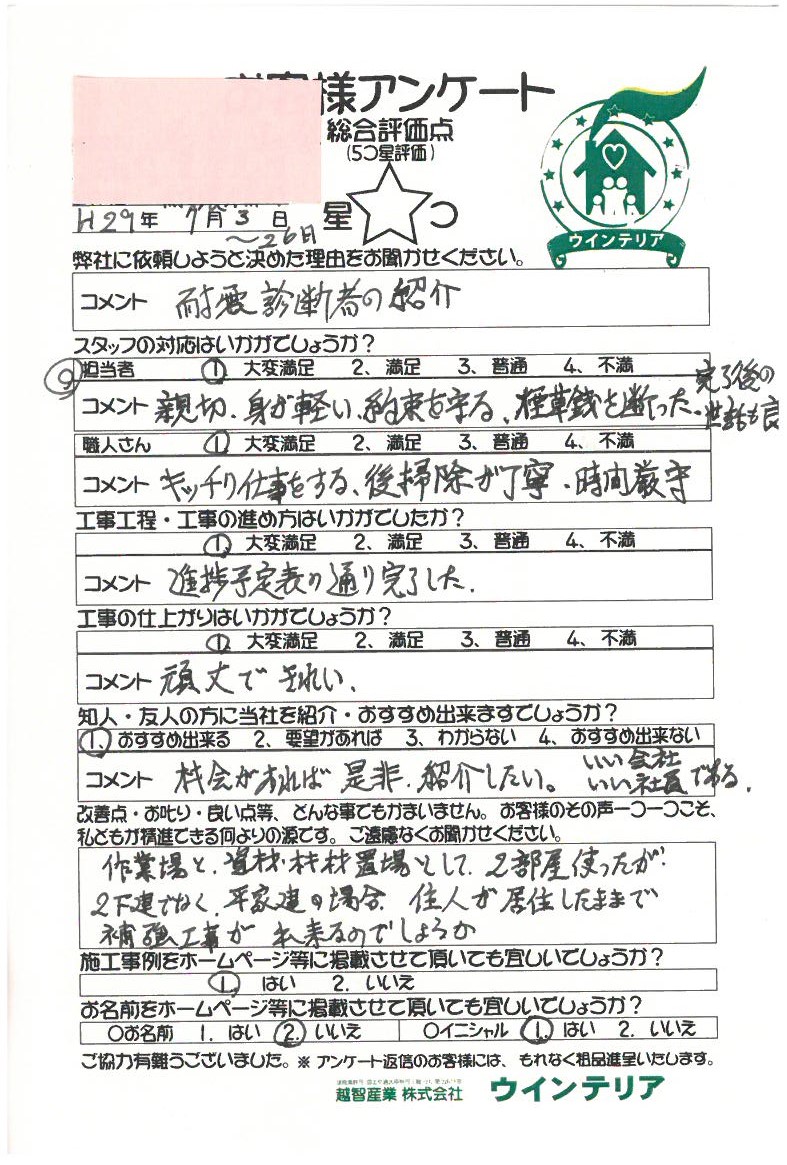 お客様アンケート
総合評価点
(5つ星評価)
H29年 7月3日 星 つ
～26日
ウインテリア
弊社に依頼しようと決めた理由をお聞かせください。
コメント 耐震診断者の紹介
スタッフの対応はいかがでしょうか?
担当者 1、大変満足 2、満足 3、普通 4、不満
完了後の
コメント 親切、身が軽い、約束を守る、極車銭を断った。
職人さん 1、大変満足 2、満足 3、普通 4、不満
コメント キッチリ仕事をする、後掃除が丁寧・時間厳守
工事工程・工事の進め方はいかがでしたか?
1、大変満足 2、満足 3、普通 4、不満
コメント 進捗予定表の通り完了した。
工事の仕上がりはいかがでしょうか?
1、大変満足 2、満足 3、普通 4、不満
コメント 頑丈できれい、
知人・友人の方に当社を紹介・おすすめ出来ますでしょうか?
1、おすすめ出来る 2、要望があれば 3、わからない 4、おすすめ出来ない
コメント 機会があれば是非、紹介したい。 いい会社
いい社員である。
改善点・お叱り・良い点等、どんな事でもかまいません。お客様のその声一つ一つこそ、
私どもが精進できる何よりの源です。ご遠慮なくお聞かせください。
作業場と、資材・材置場として、2部屋使ったが
2F建でなく、平家建の場合、住人が居住したままで
補強工事が出来るのでしょうか
施工事例をホームページ等に掲載させて頂いても宜しいでしょうか?
1. はい 2. いいえ
お名前をホームページ等に掲載させて頂いても宜しいでしょうか?
〇お名前 1. はい 2. いいえ 〇イニシャル 1. はい 2. いいえ
ご協力有難うございました。※ アンケート返信のお客様には、もれなく粗品進呈いたします。
越智産業 株式会社 ウインテリア